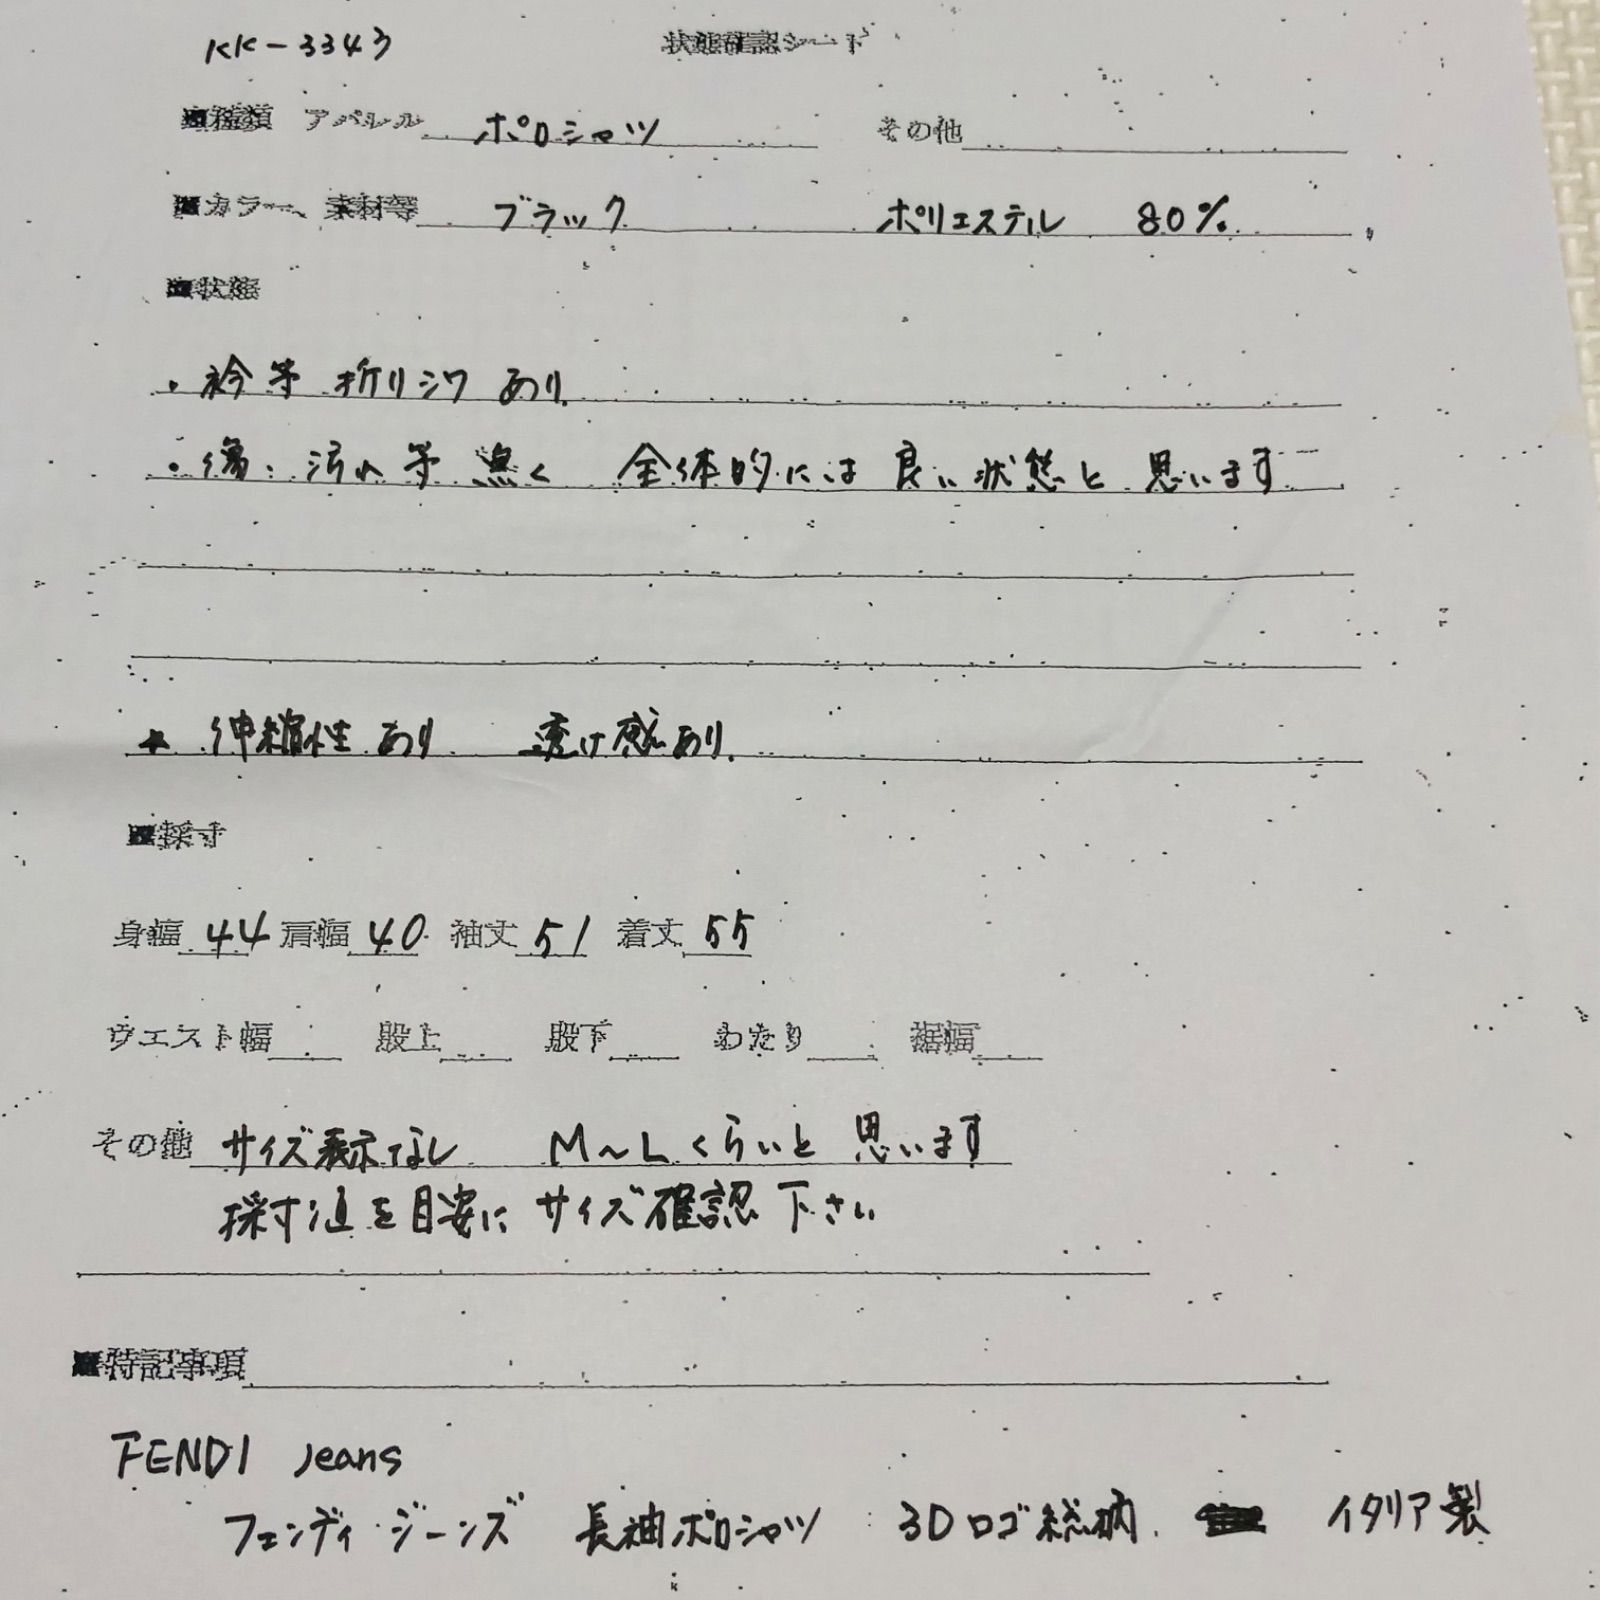 KK-3343 状態確認シート
■種類 アパレル ポロシャツ その他
■カラー、素材等 ブラック ポリエステル 80%
■状態
・衿等 折りジワ あり
・傷、汚れ等 無く 全体的には 良い状態と 思います
★ 伸縮性あり 透け感あり
■採寸
身幅 44 肩幅 40 袖丈 51 着丈 55
ウエスト幅 股上 股下 わたり 裾幅
その他 サイズ表示なし M〜Lくらいと 思います
採寸値を目安に サイズ確認下さい
■特記事項
FENDI Jeans
フェンディ・ジーンズ 長袖ポロシャツ 3Dロゴ総柄 イタリア製